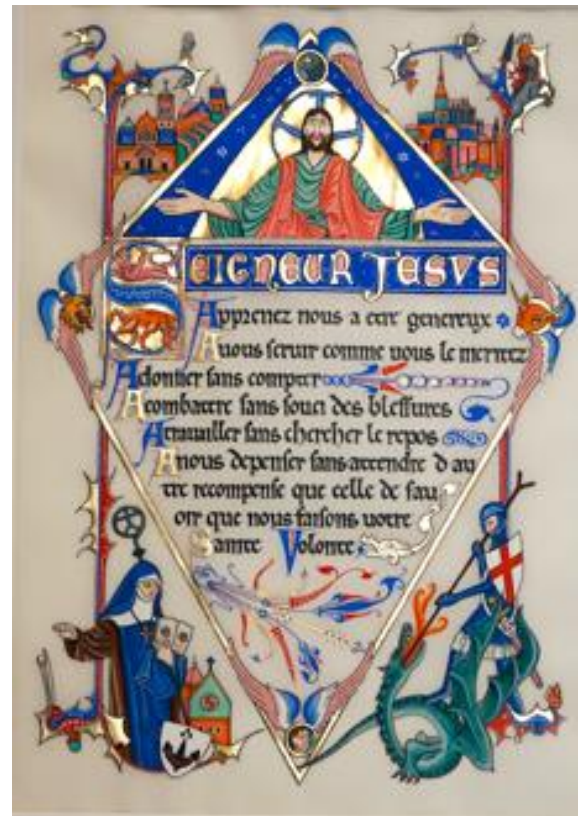 SEIGNEUR JESVS
Apprenez nous a etre genereux
A vous seruir comme vous le meritez
A donner sans compter
A combattre sans souci des blessures
A trauailler sans chercher le repos
A nous depenser sans attendre d au
tre recompense que celle de sau
oir que nous faisons uotre
Sainte Volonte